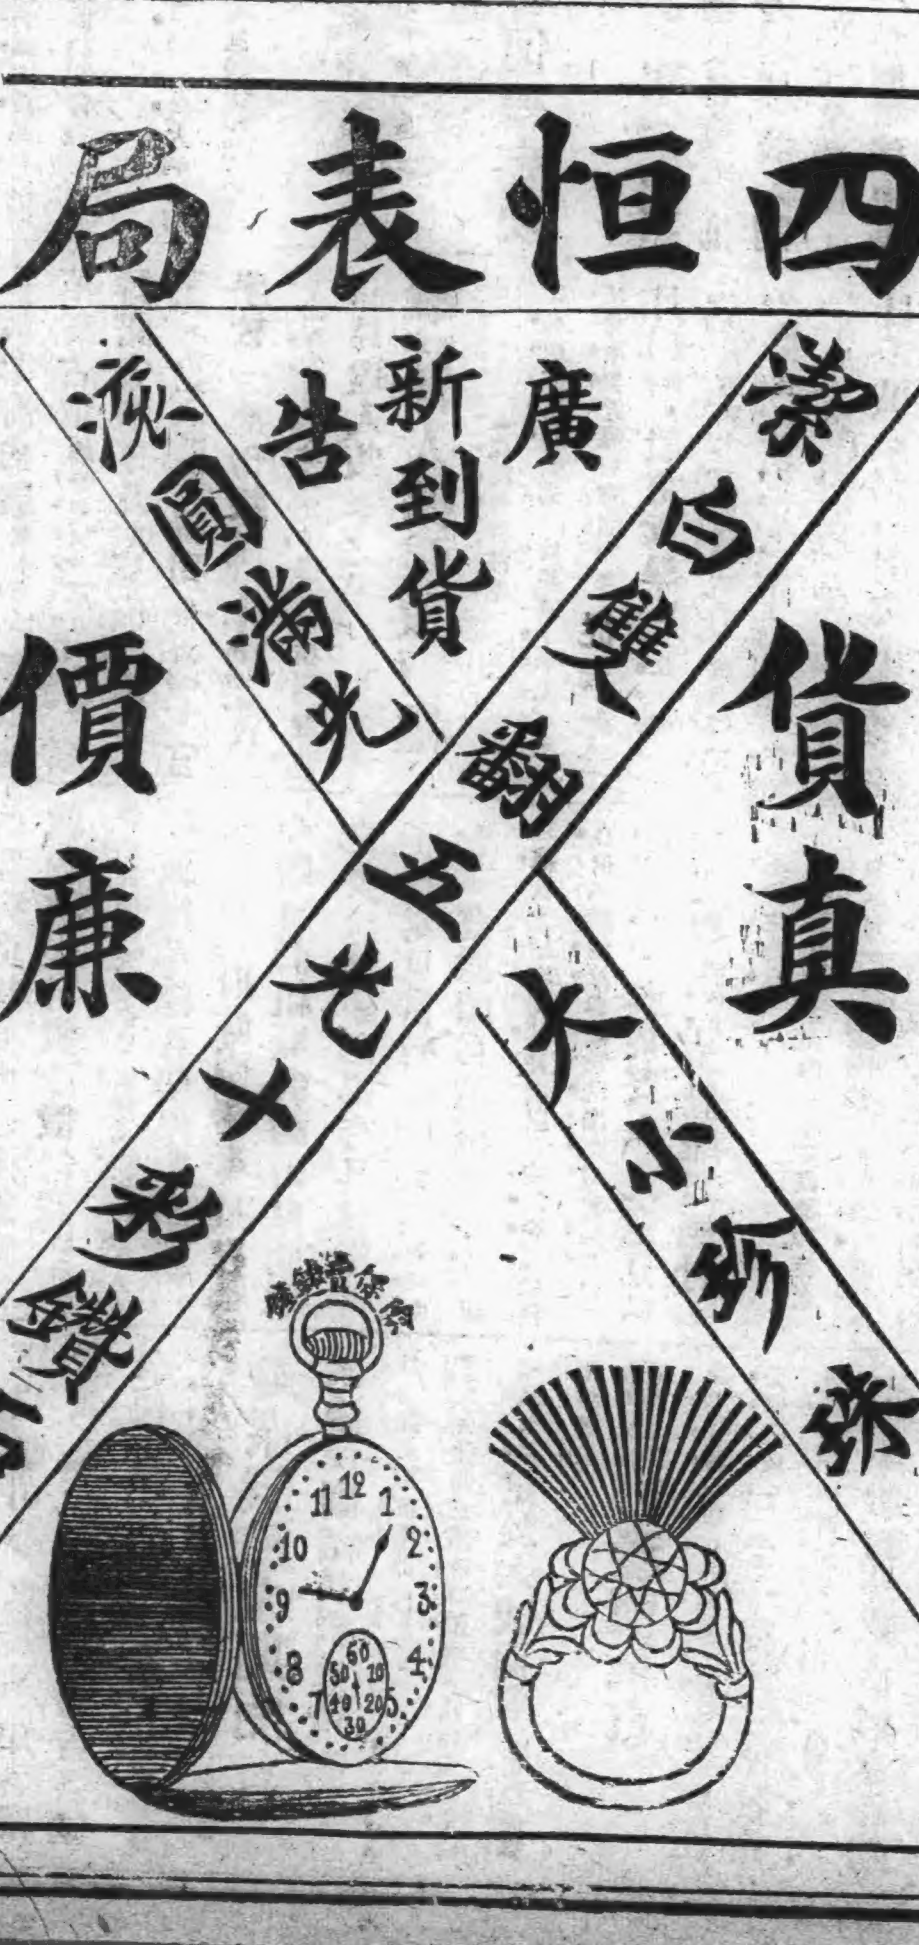 四恒表局
廣告
新到貨
貨真
價廉
潔白雙翻五光十彩鑽石
大小珍珠
圓滿光
12
1
2
3
4
5
7
8
9
10
11
60
10
20
30
40
50